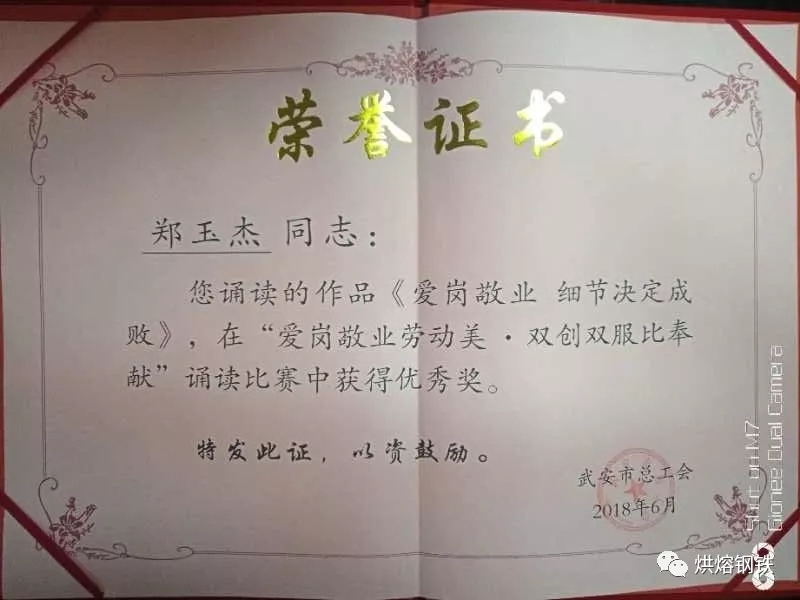 荣誉证书
郑玉杰 同志：
您诵读的作品《爱岗敬业 细节决定成
败》，在“爱岗敬业劳动美·双创双服比奉
献”诵读比赛中获得优秀奖。
特发此证，以资鼓励。
武安市总工会
2018年6月
Shot on M7
Gionee Dual Camera
烘熔钢铁